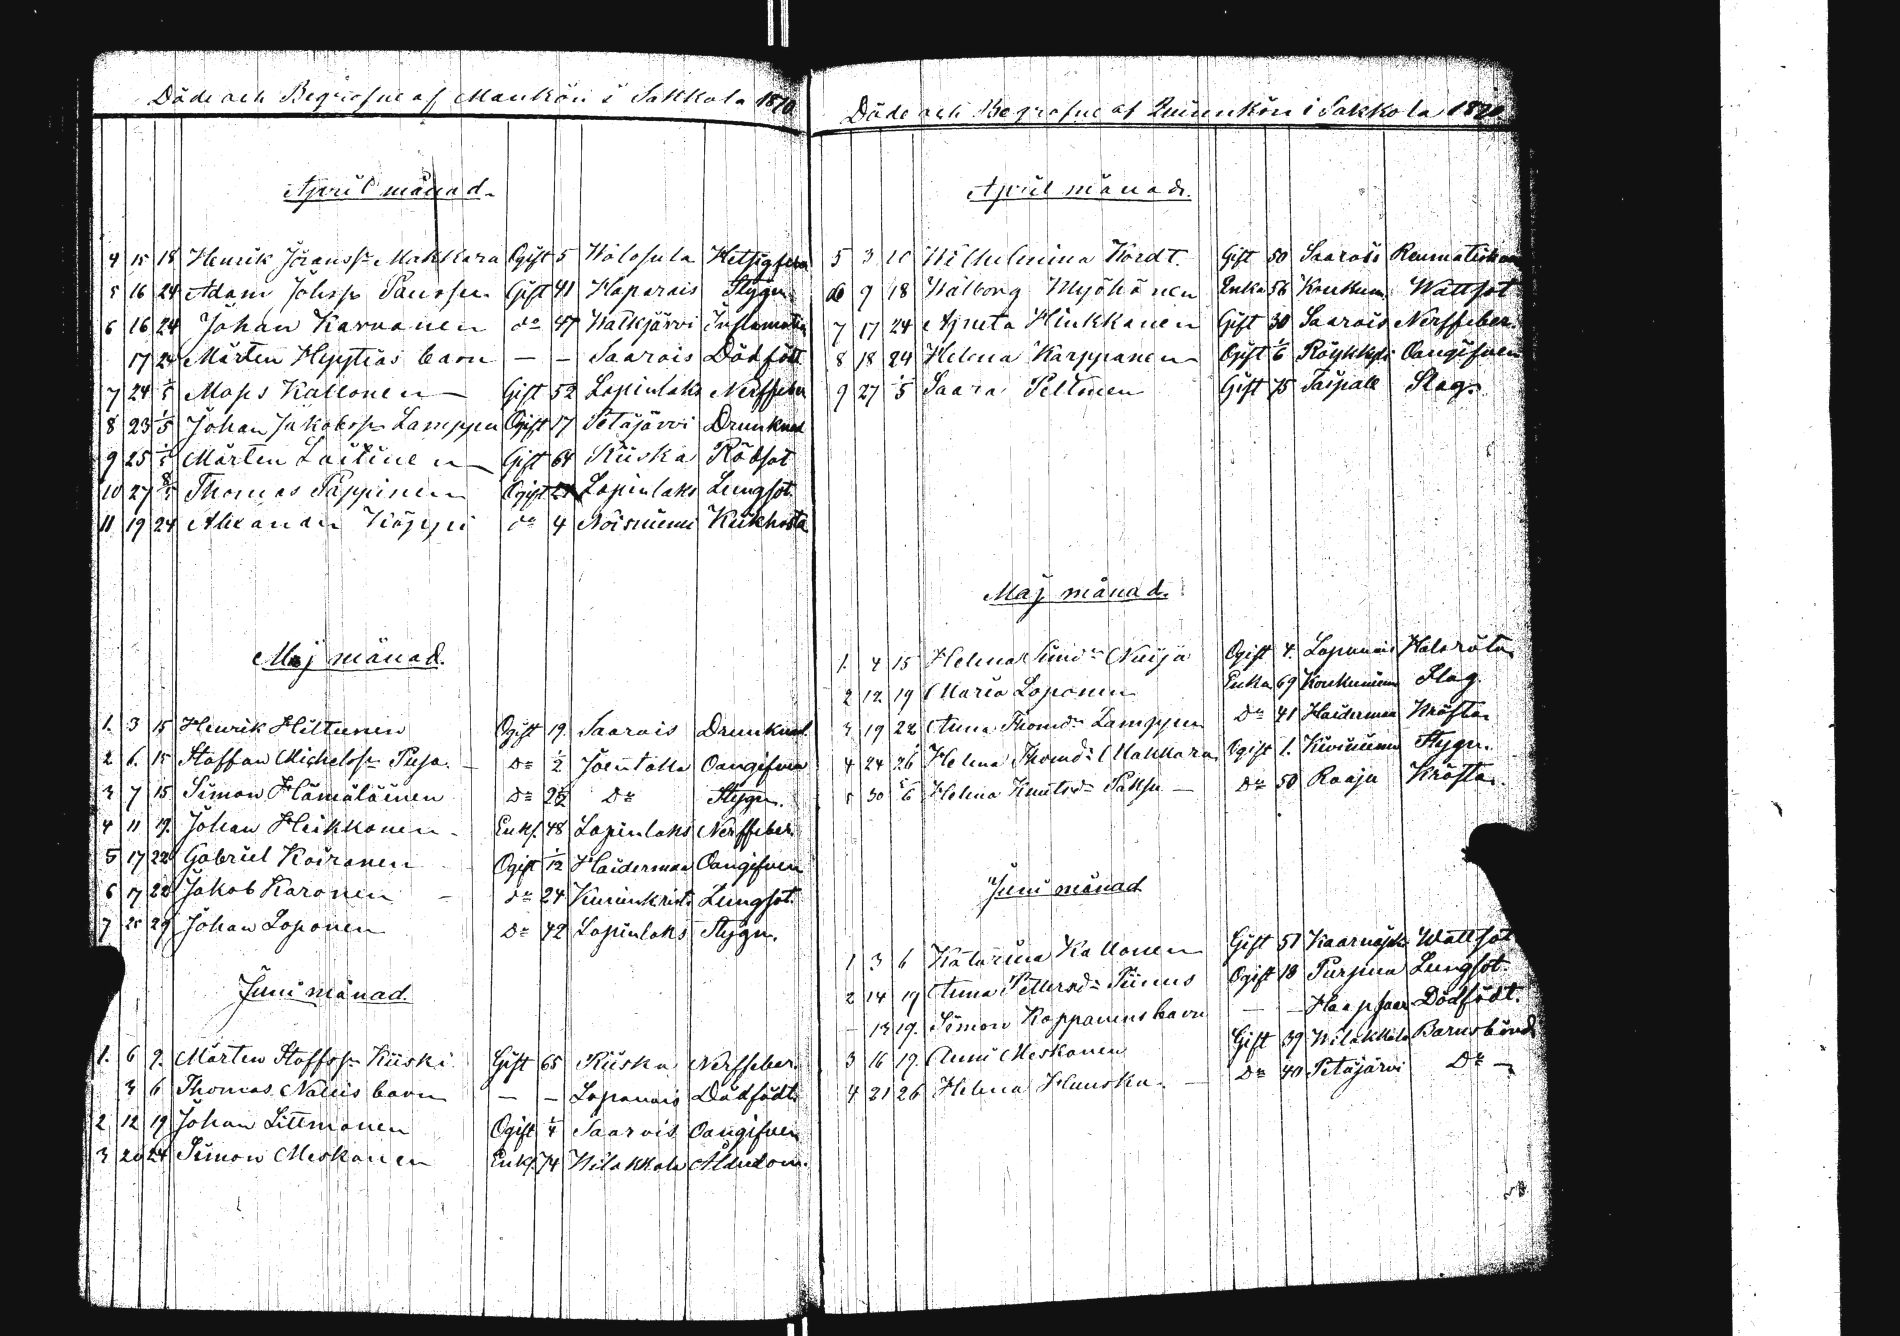 Döde och Begrafne af Mankön i Sakkola 1820
April månad.
4 15 18 Henrik Jöranss. Makkara Ogift 5 Walosula Hetsigfeber
5 16 24 Adam Johss. Paussu Gift 41 Haparais Stygn
6 16 24 Johan Karvanen do 47 Walkjärvi Inflamation
17 24 Mårten Hyytiäs barn — — Saarois Dödfödt
7 24 1/5 Maps Kallonen — Gift 52 Lapinlaks Nerffeber
8 23 1/5 Johan Jakobss. Lamppu Ogift 17 Petäjärvi Drunknad
9 25 1/5 Mårten Laitinen — Gift 64 Kiiska Rödsot
10 27 Thomas Pappinen Ogift Lapinlaks Lungsot.
11 19 24 Alexander Köppi do 4 Noisniemi Kikhosta
Maj månad.
1. 3 15 Henrik Hiltunen Ogift 19 Saarois Drunknad.
2 6. 15 Staffan Michelss. Puja. — Do 1/2 Joentaka Oangifven
3 7 15 Simon Hämäläinen Do Do Stygn.
4 11 19. Johan Heikkonen. Enkl. 48 Lapinlaks Nerffeber.
5 17 22 Gabriel Koiranen Ogift 1/12 Haiderman Oangifven
6 17 22 Jakob Karonen — do 24 Lungsot.
7 25 29 Johan Loponen Do 42 Lapinlaks Stygn.
Juni månad.
1. 6 9. Mårten Staffss. Kiiski Gift 65 Kiiska Nerffeber.
3 6 Thomas Naliis barn — — Lapanais Dödfödt.
2 12 19 Johan Littmanen Ogift 1/4 Saarois Oangifven
3 20 24 Simon Meskanen Enkl. 74 Wilakkala Ålderdom.
Döde och Begrafne af Quinnkön i Sakkola 1820
April månad.
5 3 10 Wilhelmina Nordt. Gift 50 Saarois Reumatisk
6 9 18 Walborg Myöhänen Enka 56 Wattsot
7 17 24 Agneta Hinkkanen Gift 30 Saarois Nerffeber.
8 18 24 Helena Karppanen Ogift 1/6 Röykkylä Oangifven
9 27 1/5 Saara Peltonen Gift 75 Taipale Slag.
Maj månad.
1. 4 15 Helena Simd:r Naija Ogift 4. Lapanais Halsröta
2 12 19 Maria Loponen Enka 69 Slag.
3 19 22 Anna Thomd:r Lamppu Do 41 Haiderman Kräfta
4 24 26 Helena Thomd:r Makkara Ogift 1. Kiviniemi Stygn.
5 30 5/6 Helena Knutsd:r Paksu — Do 50 Raaju Kräfta.
Juni månad
1 3 6 Katarina Kallonen Gift 51 Wattsot
2 14 19 Anna Pettersd:r Piinus Ogift 18 Purpua Lungsot.
— 13 19. Simon Kappanens barn — — Haapsaar Dödfödt.
3 16 19. Anni Meskanen Gift 39 Wilakkala Barnsbörd
4 21 26 Helena Hunska. — Do 40 Petäjärvi Do —